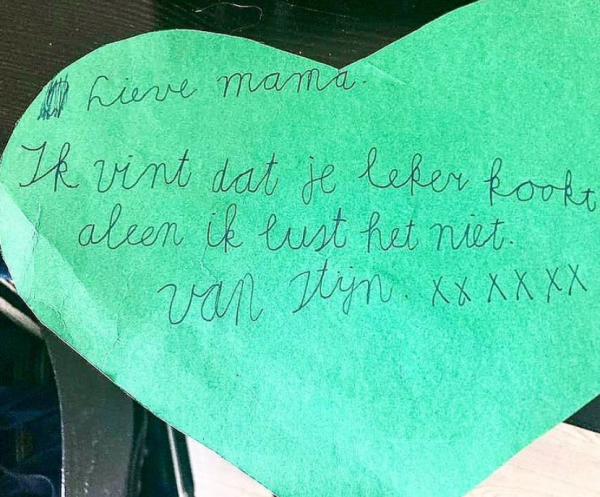 Lieve mama.
Ik vint dat je leker kookt
aleen ik lust het niet.
van Stijn. xx xx xx